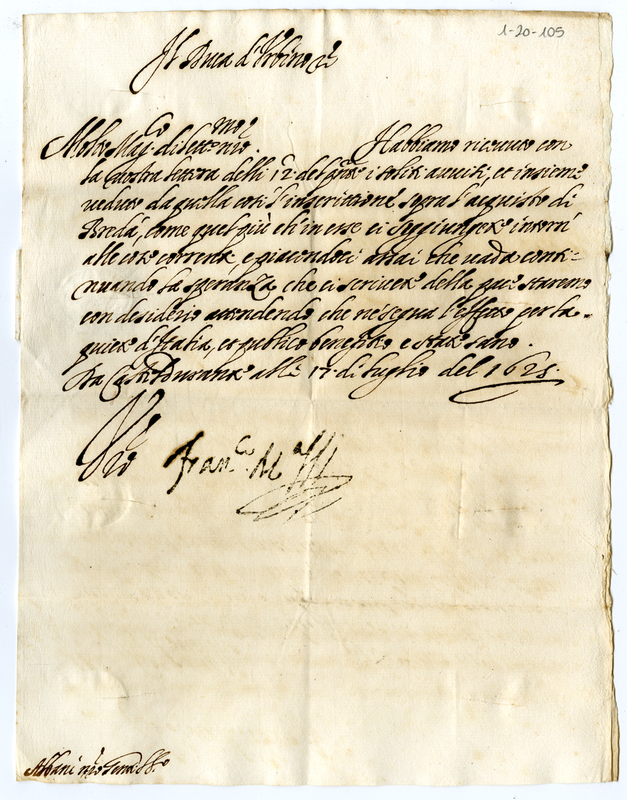 1-20-105
Il Duca d'Urbino &c
Molto Mag.co dilett.mo nro. Habbiamo ricevuto con
la vostra lettera delli 12 del pnte i soliti avvisi, et insieme
veduto da quella costì l'inscrittione sopra l'acquisto di
Bredà, come quel più ch'in esse ci soggiungete intorno
alle cose correnti, e piacendoci assai che vada conti-
nuando la speranza che ci scrivete della pace staremo
con desiderio attendendo che ne segua l'effetto per la
quiete d'Italia, et publico beneficio e state sano.
Da Castel Durante alli 17 di luglio del 1625.
Fran.co M.a
Abbani nro